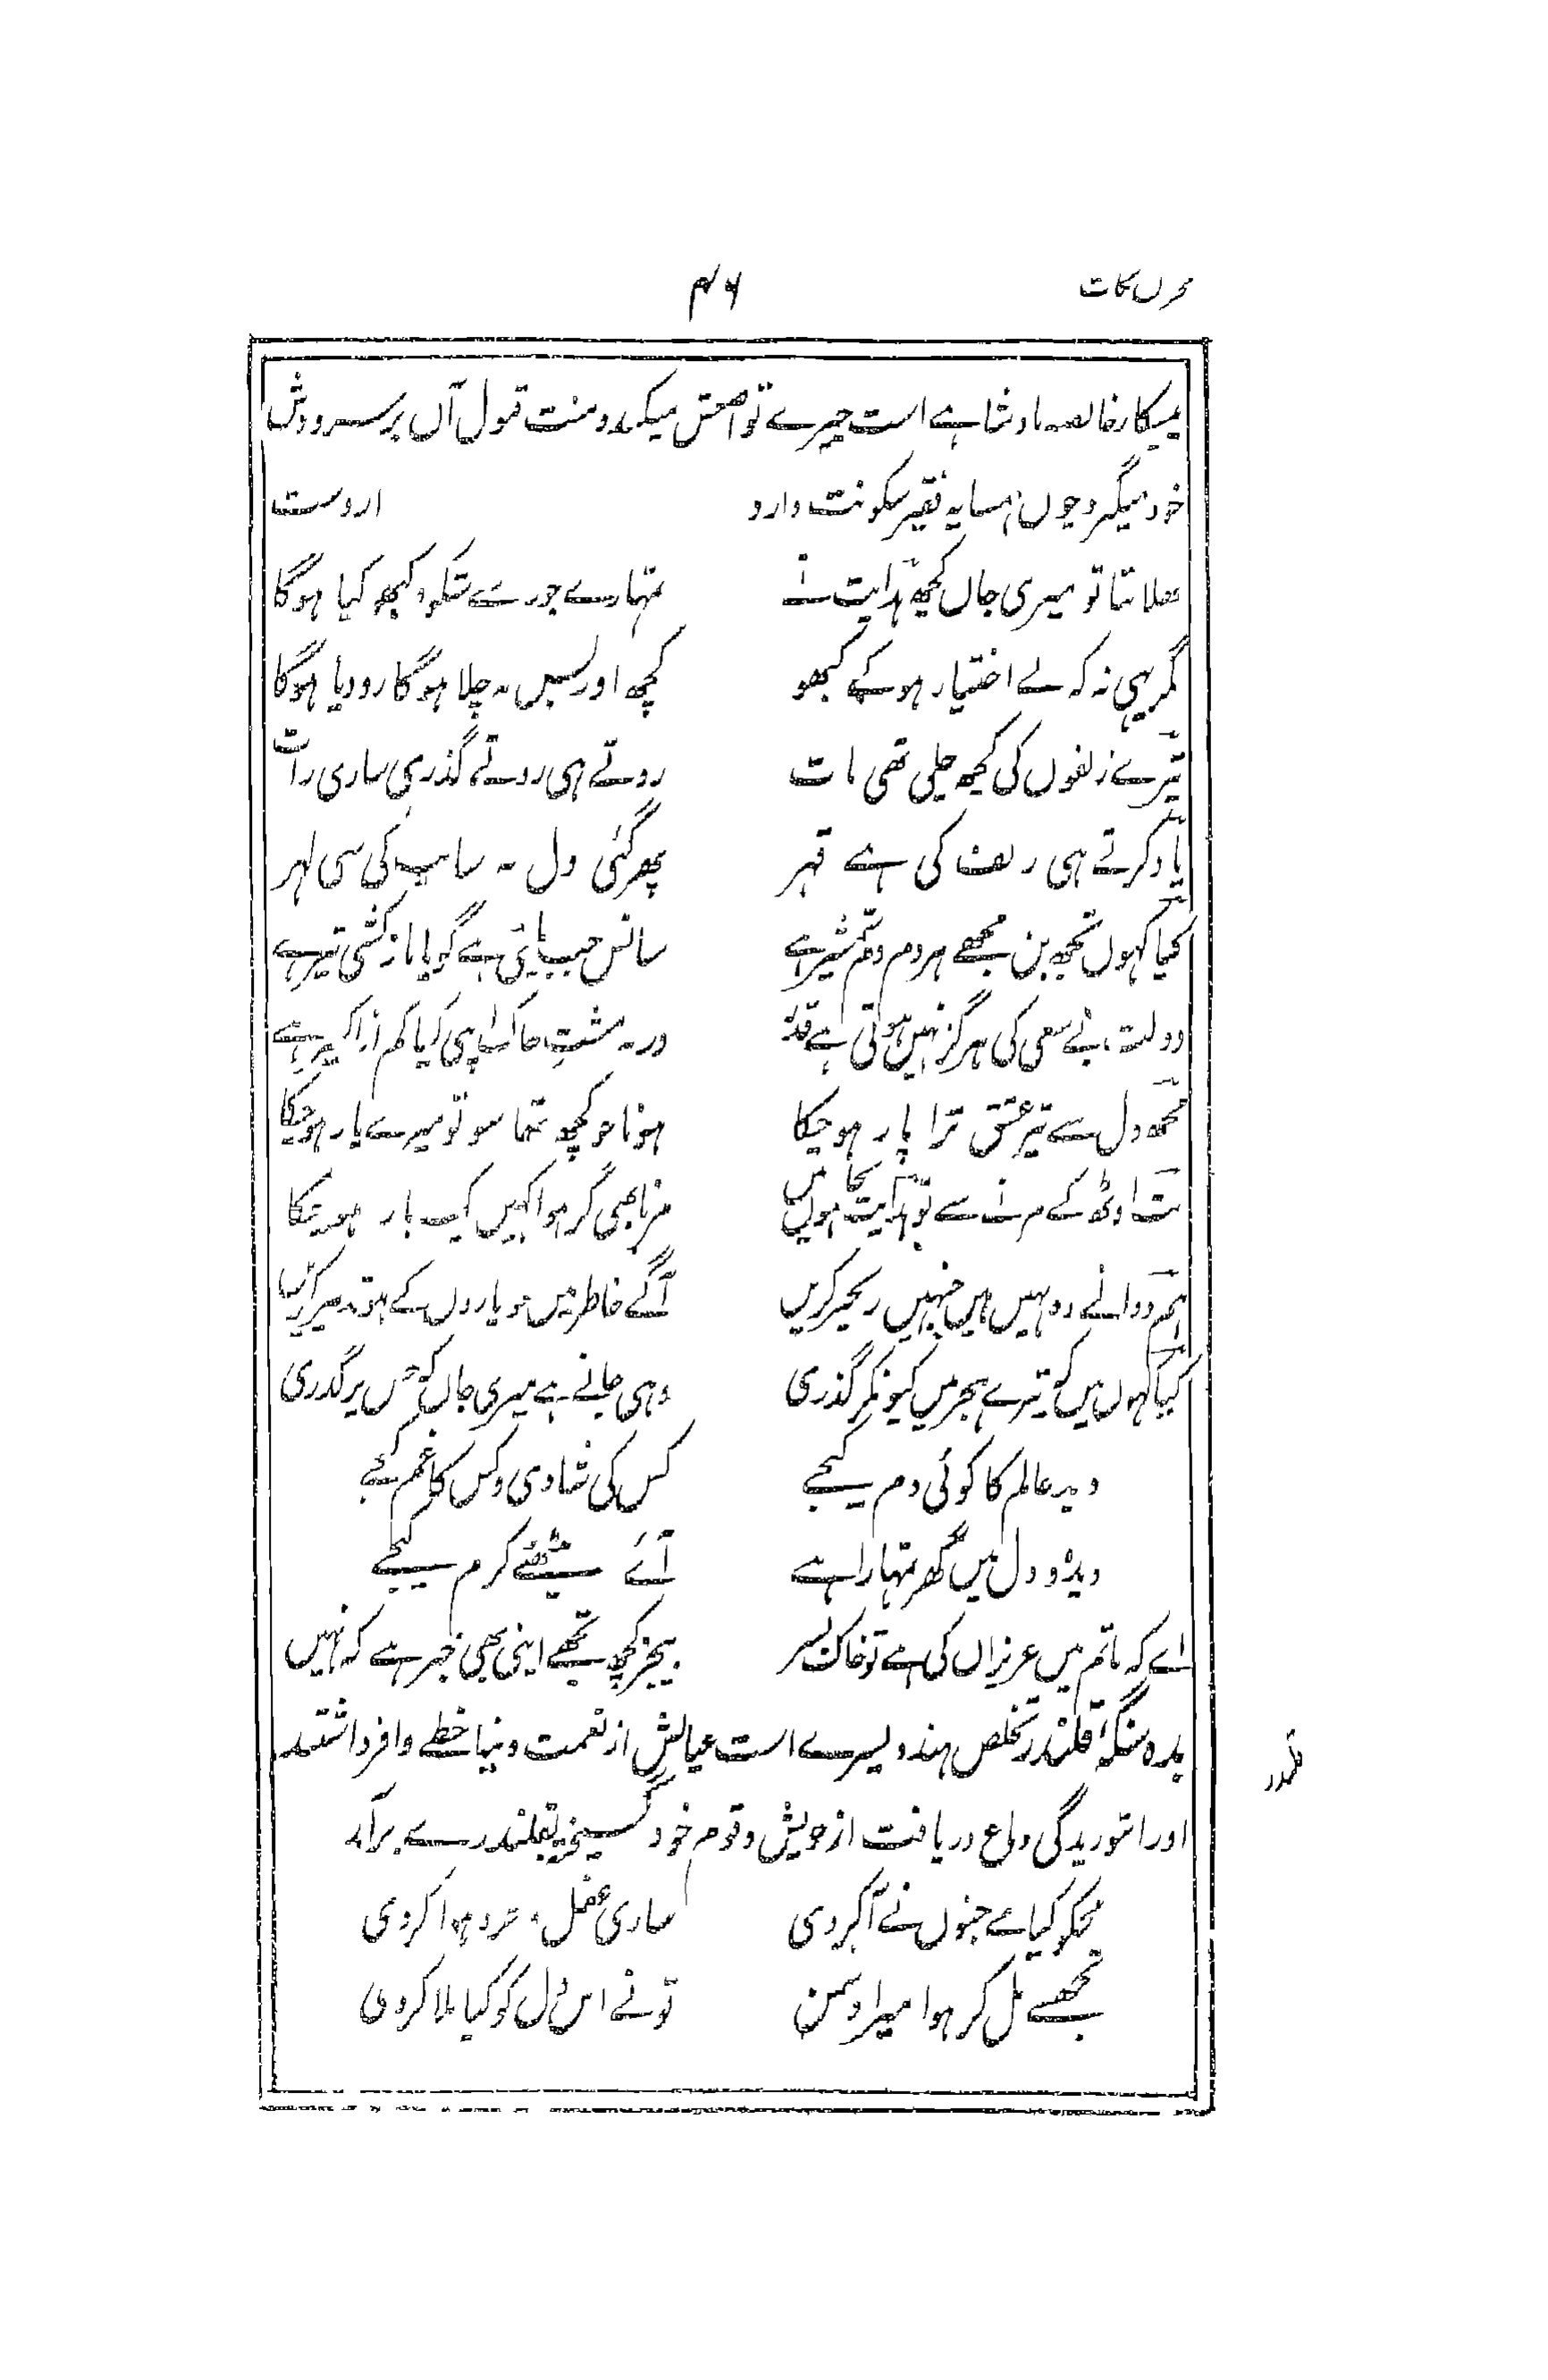 مخزن نکات
۴۶
پیشکار خالصہ پادشاہے است چیزے تواضعش میکند و منت قبول آں بر سر و دوش
خود میگیرد چوں ہمسایہ فقیر سکونت دارد ازوست
بھلا بتا تو میری جاں کچھ ہدایت نے تمہارے جور سے شکوہ کبھو کیا ہوگا
مگر یہی نہ کہ بے اختیار ہو کے کبھو کچھ اور بس نہ چلا ہوگا رو دیا ہوگا
تیرے زلفوں کی کچھ چلی تھی بات روتے ہی روتے گذری ساری رات
یاد کرتے ہی زلف کی ہے قہر پھر گئی دل پہ سانپ کی سی لہر
کیا کہوں تجھ بن مجھے ہر دم دم شمشیر ہے سانس جب آتی ہے گویا بازگشتی تیر ہے
دولت بے سعی کی ہرگز نہیں ہوتی ہے قدر ورنہ مشتِ خاک اپنی کیا کم از اکسیر ہے
مجھ دل سے تیر عشق ترا پار ہو چکا ہونا جو کچھ تھا سو تو میرے یار ہو چکا
مت اوٹھ کے مرنے سے تو ہدایت ہوں بجا میں مرنا بھی گر ہوا کہیں یک بار ہو چکا
ہم دوانے وہ نہیں ہیں جنہیں زنجیر کریں آگے خاطر میں جو یاروں کے ہو تدبیر کریں
کیا کہوں میں کہ تیرے ہجر میں کیونکر گذری وہی جانے ہے میری جاں کہ جس پر گذری
دید عالم کا کوئی دم کیجے کس کی شادی و کس کا غم کیجے
دیدہ و دل میں گھر تمہارا ہے آئے بیٹھئے کرم کیجے
اے کہ ماتم میں عزیزاں کی ہے تو خاک بسر بیخبر کچھ تجھے اپنی بھی خبر ہے کہ نہیں
بدہ سنگہ قلندر تخلص ہندو پسرے است عیالش از نعمت دنیا حظے وافر داشتند
قلندر
اورا شوریدگی دماغ دریافت از خویش و قوم خود گسیختہ بقلندرے برآمد
مجکو کیا مے جنوں نے آکر دی ساری عقل و خرد ہوا کر دی
تجھسے مل کر ہوا میرا دشمن تو نے اس دل کو کیا بلا کر دی